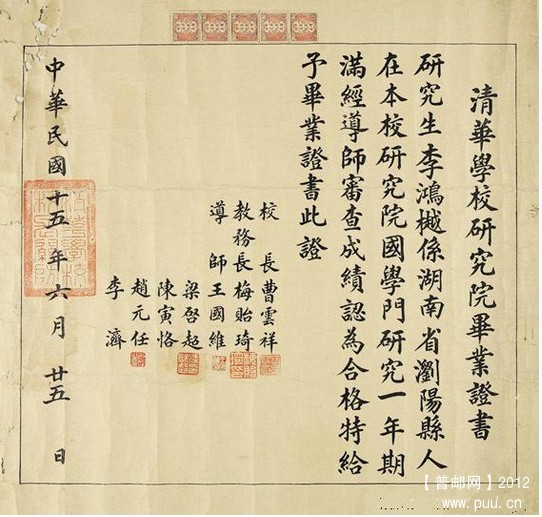 清華學校研究院畢業證書
研究生李鴻樾係湖南省瀏陽縣人
在本校研究院國學門研究一年期
滿經導師審查成績認為合格特給
予畢業證書此證
校長曹雲祥
教務長梅貽琦
導師王國維
梁啓超
陳寅恪
趙元任
李濟
中華民國十五年六月廿五日
【普邮网】2012
www.puu.cn